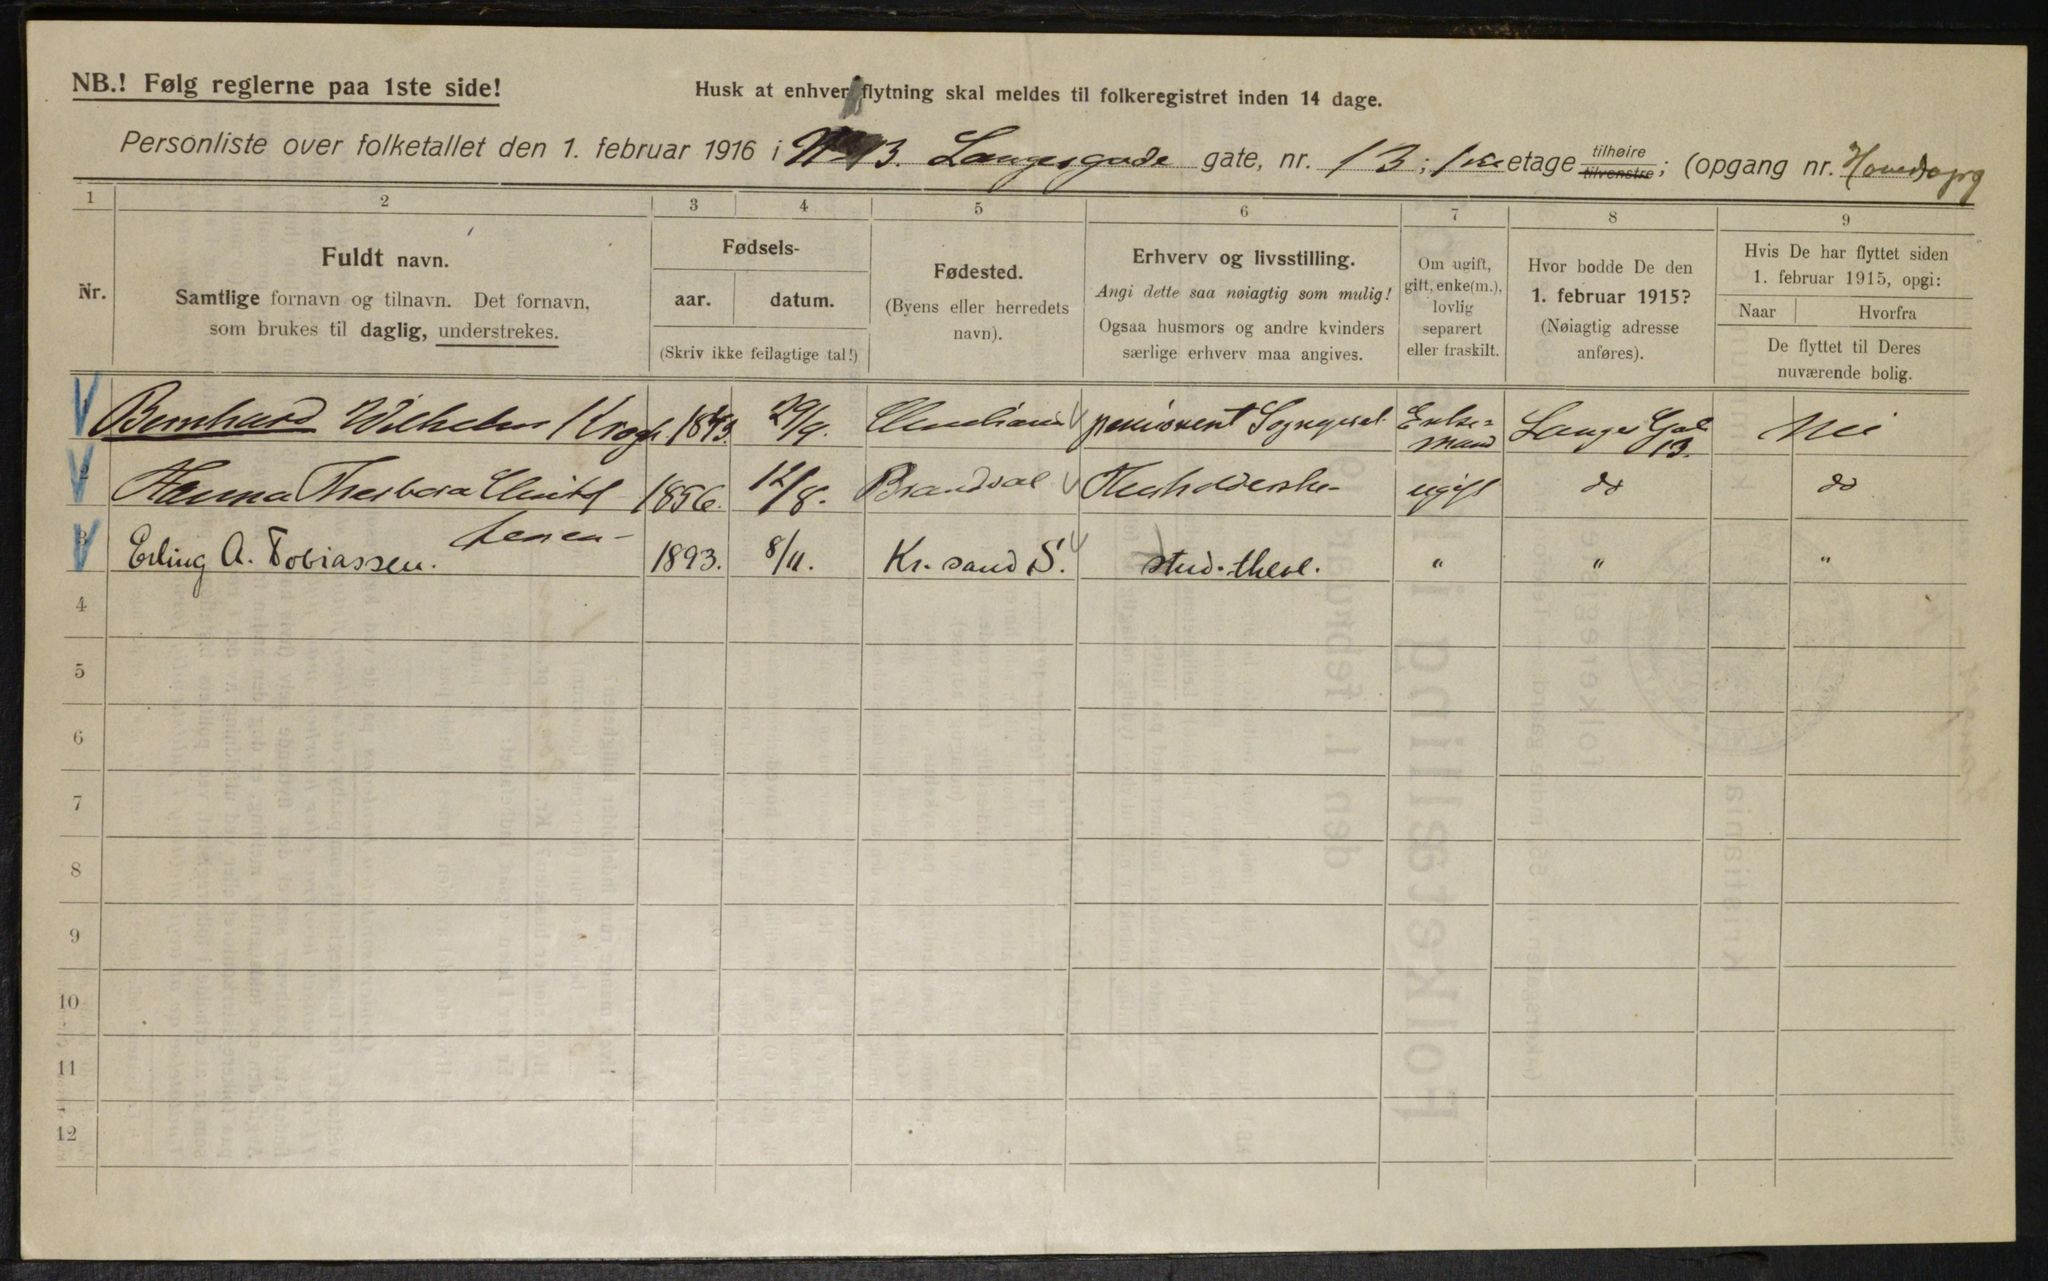 NB.! Følg reglerne paa 1ste side!
Husk at enhver flytning skal meldes til folkeregistret inden 14 dage.
Personliste over folketallet den 1. februar 1916 i 13. Langesgade gate, nr. 13; 1ste etage tilhøire tilvenstre; (opgang nr. Hovedopg
1 2 3 4 5 6 7 8 9
Nr.
Fuldt navn.
Samtlige fornavn og tilnavn. Det fornavn,
som brukes til daglig, understrekes.
Fødsels-
aar. datum.
(Skriv ikke feilagtige tal!)
Fødested.
(Byens eller herredets
navn).
Erhverv og livsstilling.
Angi dette saa nøiagtig som mulig!
Ogsaa husmors og andre kvinders
særlige erhverv maa angives.
Om ugift,
gift, enke(m.),
lovlig
separert
eller fraskilt.
Hvor bodde De den
1. februar 1915?
(Nøiagtig adresse
anføres).
Hvis De har flyttet siden
1. februar 1915, opgi:
Naar Hvorfra
De flyttet til Deres
nuværende bolig.
Bernhard Wilhelm Krogh 1843. 29/9. pensioneret Sogneprest Enke- Langes Gade Nei
mand 13.
2 Hanna Thorbora 1856. 12/8. Brandval Husholderske ugift do do
Jensen
3 Erling A. Tobiassen. 1893. 8/11. Kr. sand S. stud. theol. " " "
4
5
6
7
8
9
10
11
12